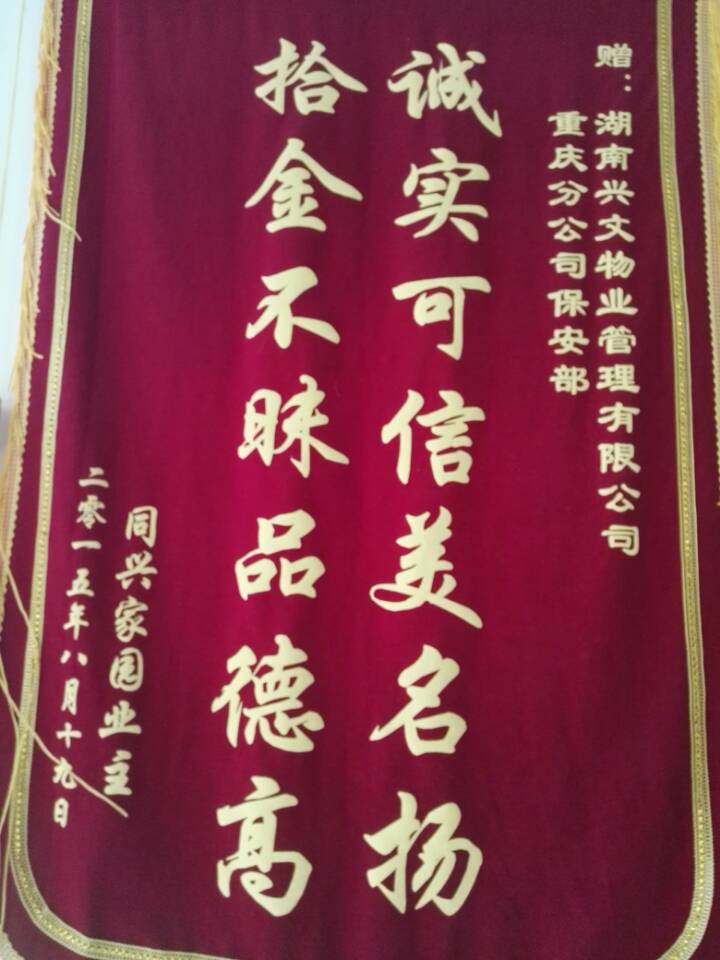 赠：湖南兴文物业管理有限公司
重庆分公司保安部
诚实可信美名扬
拾金不昧品德高
同兴家园业主
二零一五年八月十九日